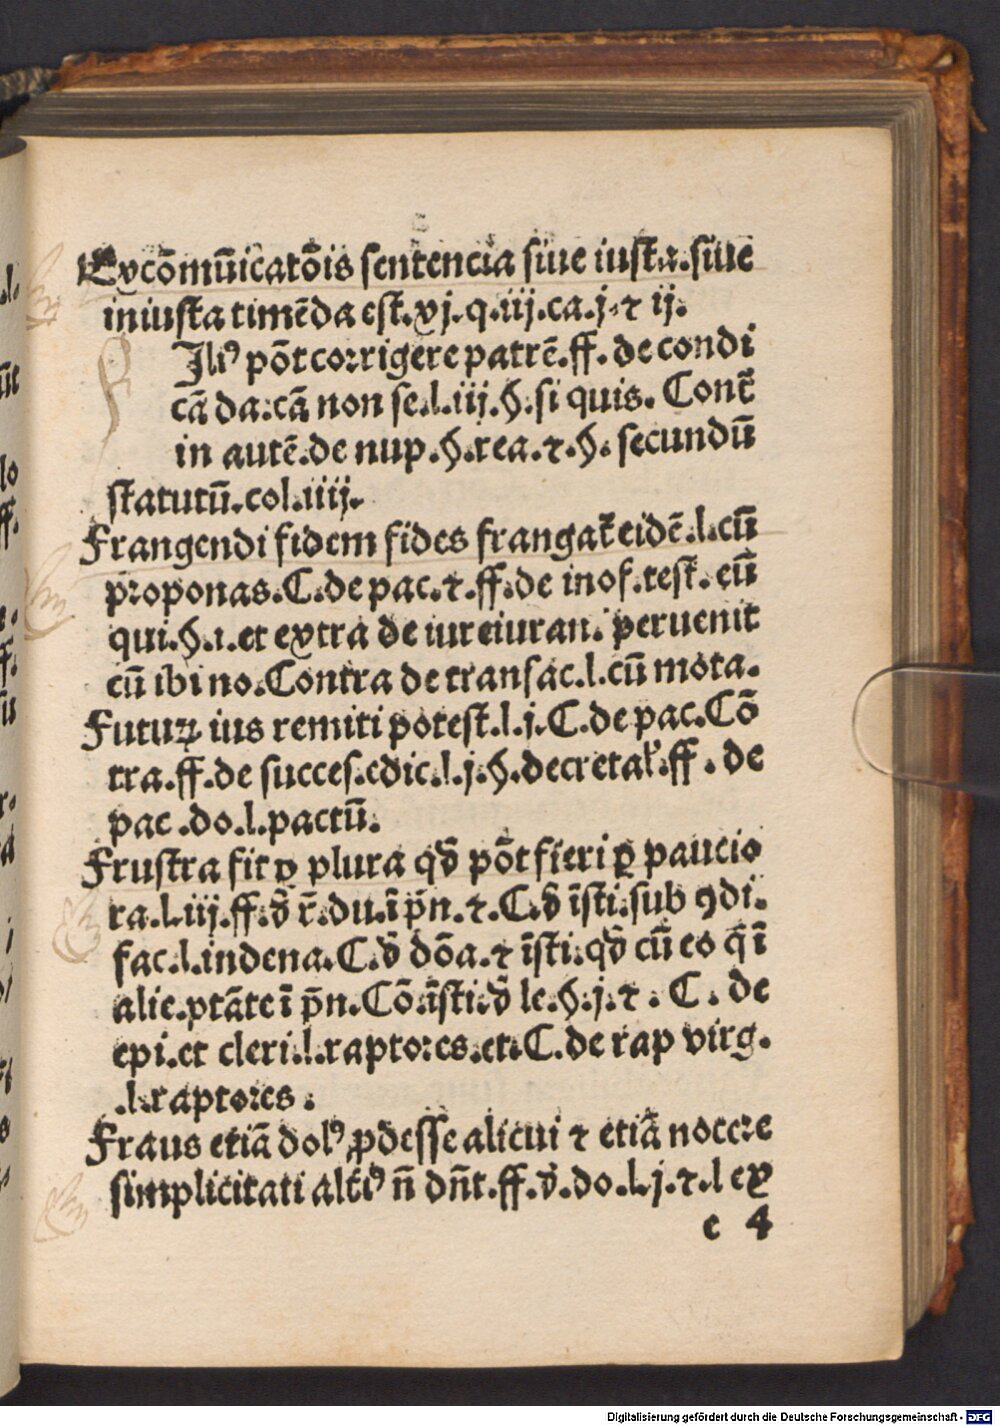 Excōmūicatōis sentencia siue iusta. siue
iniusta timēda est. vj. q. iij. ca. j. ⁊ ij.
Iliꝰ pōt corrigere patrē. ff. de condi
cā da: cā non se. l. iiij. §. si quis. Cont̄
in autē. de nup. §. rea. ⁊. §. secundū
statutū. col. iiij.
Frangendi fidem fides frangat̄ eidē. l. cū
proponas. C. de pac. ⁊. ff. de inof. test. eū
qui. §. 1. et extra de iureiuran. peruenit
cū ibi no. Contra de transac. l. cū mota.
Futuꝝ ius remiti potest. l. j. C. de pac. Cō
tra. ff. de succes. edic. l. j. §. decretaƚ. ff. de
pac. do. l. pactū.
Frustra fit ꝑ plura qđ pōt fieri ꝑ paucio
ra. l. iij. ff. đ r̄. du. ī pn̄. ⁊. C. đ īsti. sub ꝯdi.
fac. l. indena. C. đ dōa. ⁊ īsti. qđ cū eo q̄ ī
alie. ptāte ī pn̄. Cō. īsti. đ le. §. j. ⁊. C. de
epi. et cleri. l. raptores. et. C. de rap virg.
. l. raptores.
Fraus etiā dolꝰ ꝓdesse alicui ⁊ etiā nocere
simplicitati altiꝰ n̄ dn̄t. ff. đ. do. l. j. ⁊. l ex
c 4
Digitalisierung gefördert durch die Deutsche Forschungsgemeinschaft - DFG